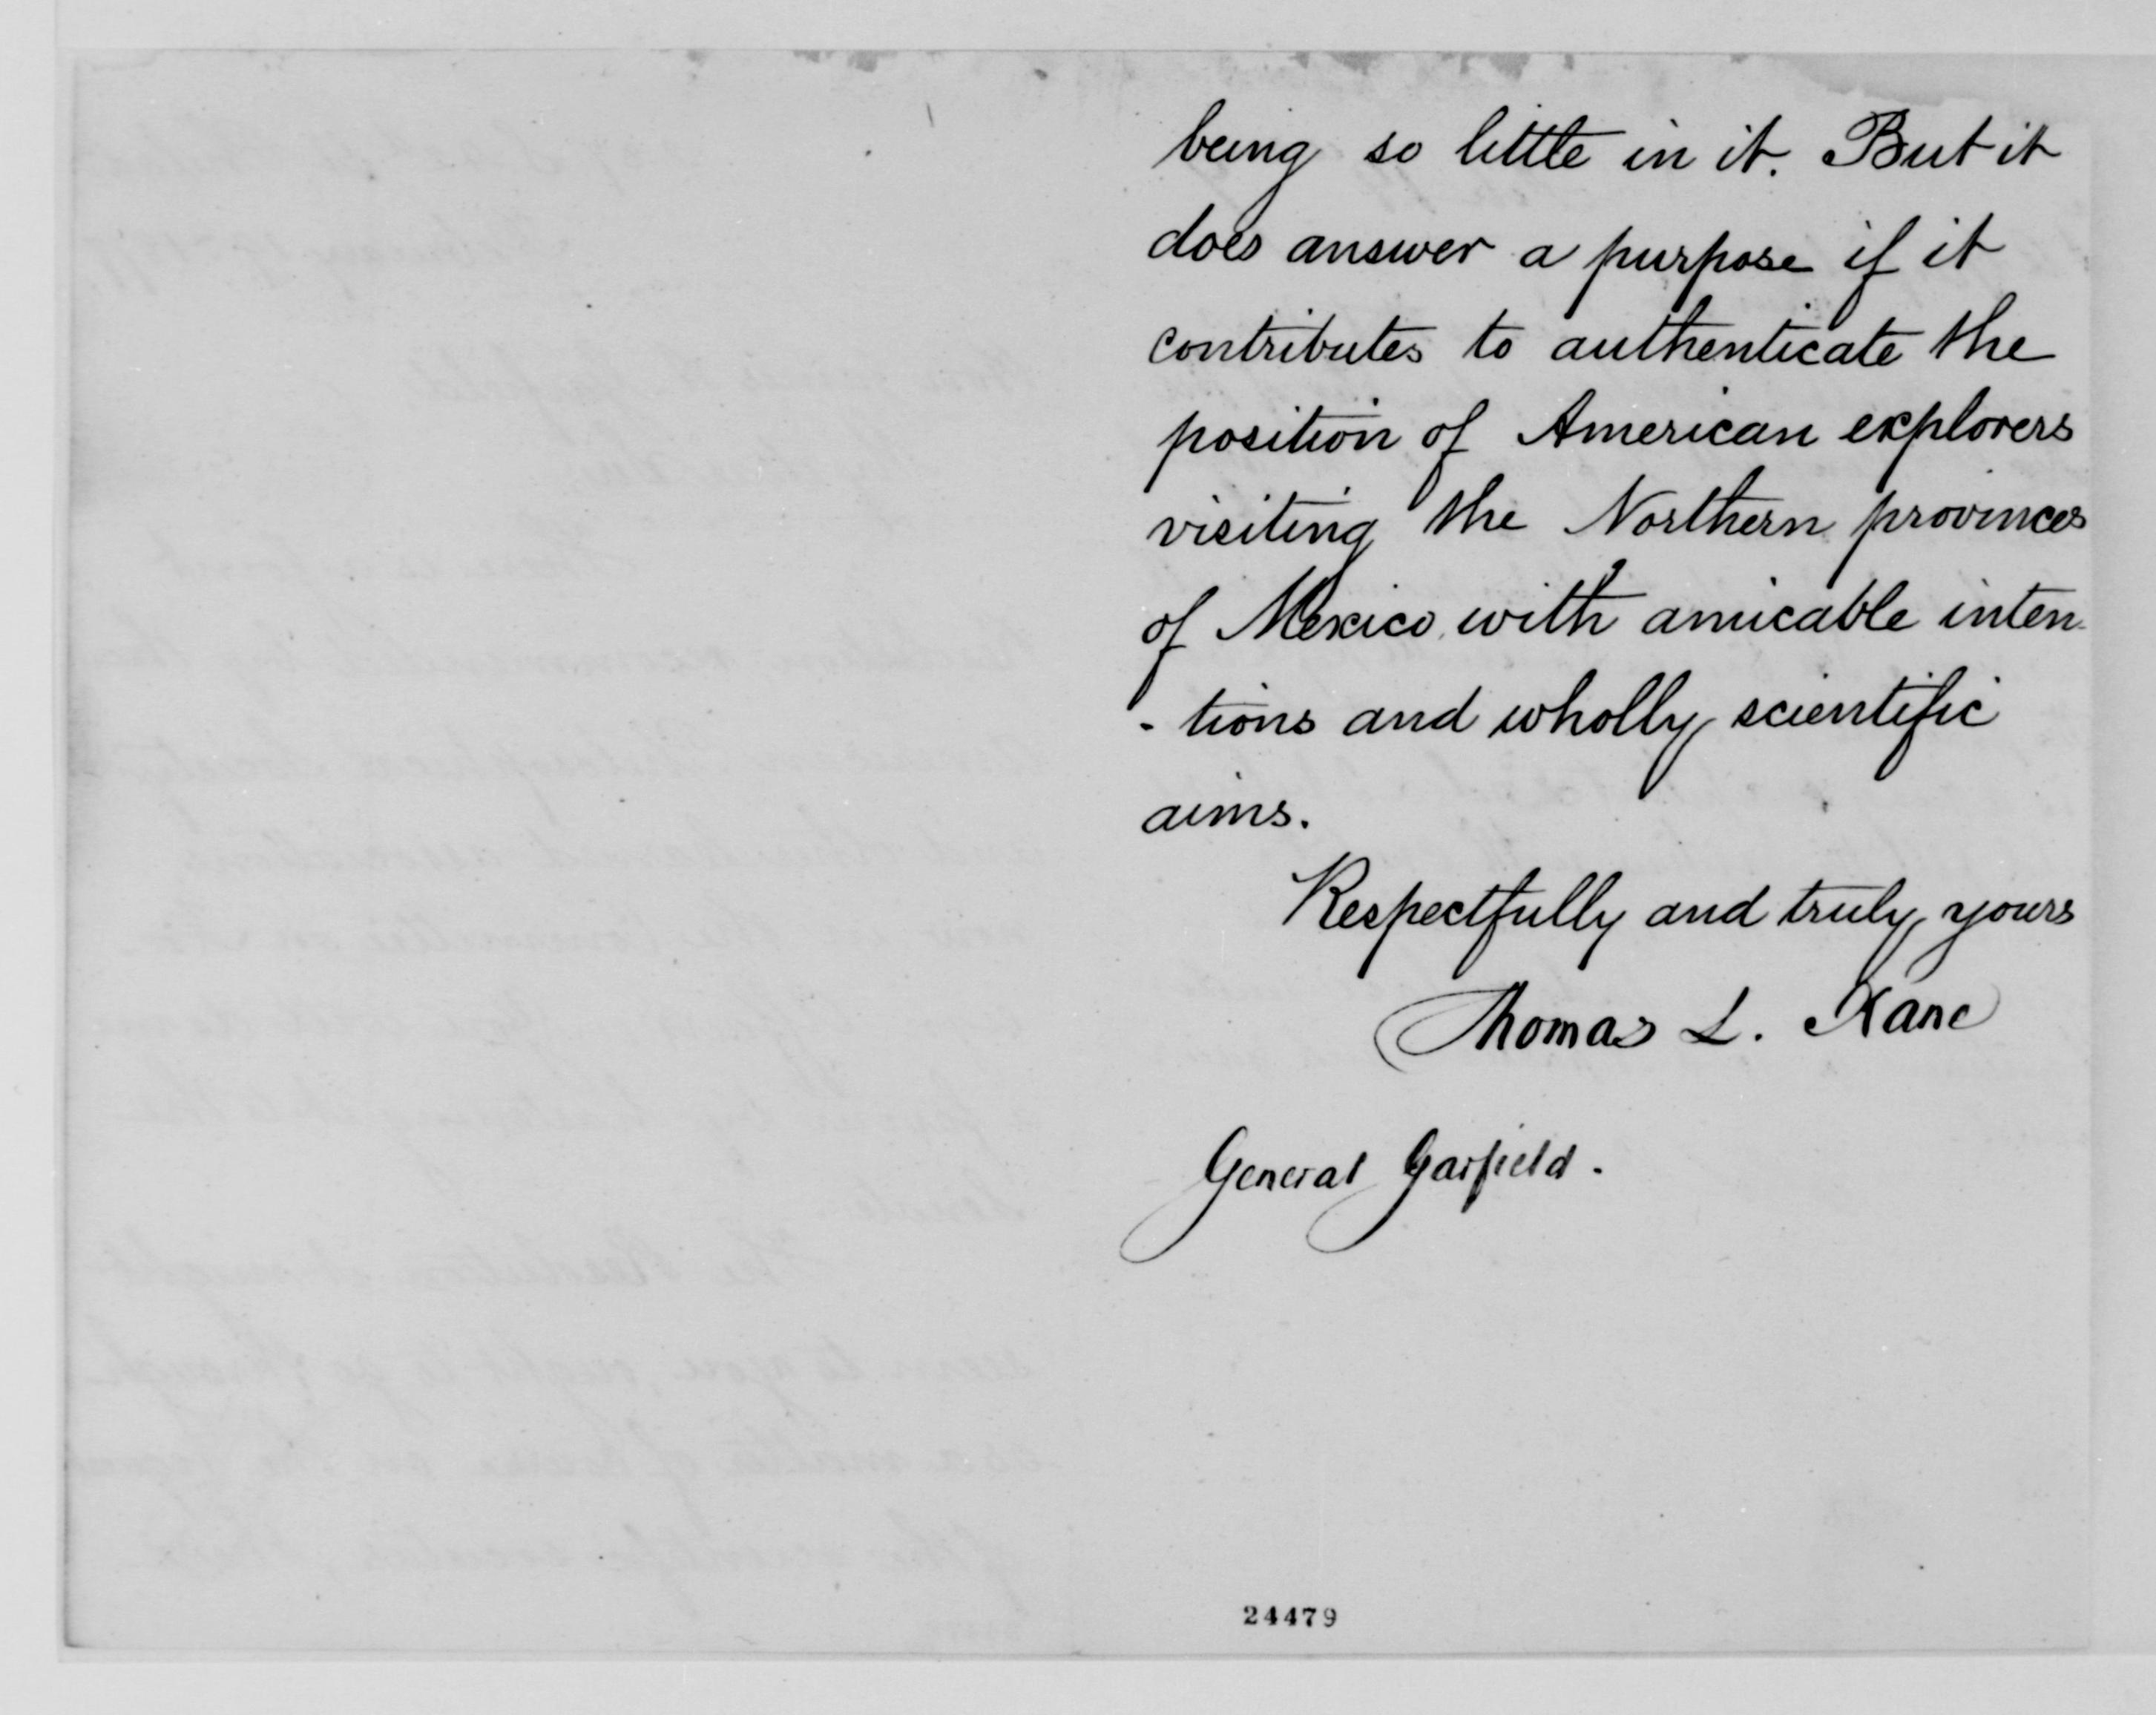 being so little in it. But it
does answer a purpose if it
contributes to authenticate the
position of American explorers
visiting the Northern provinces
of Mexico with amicable inten-
- tions and wholly scientific
aims.
Respectfully and truly yours
Thomas L. Kane
General Garfield.
24479